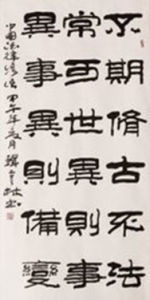 不期脩古不法
常可世異則事
異事異則備變
中國法律 甲午年夏月